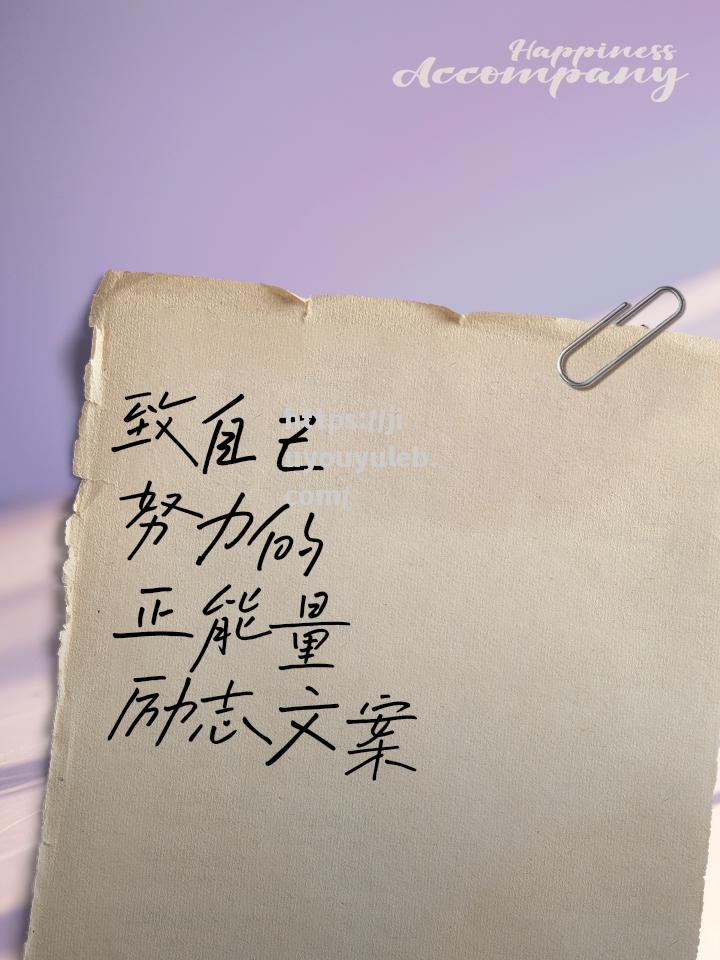 Happiness
Accompany
致自己
https://ji
uyouyuleb.
com(
努力的
正能量
励志文案